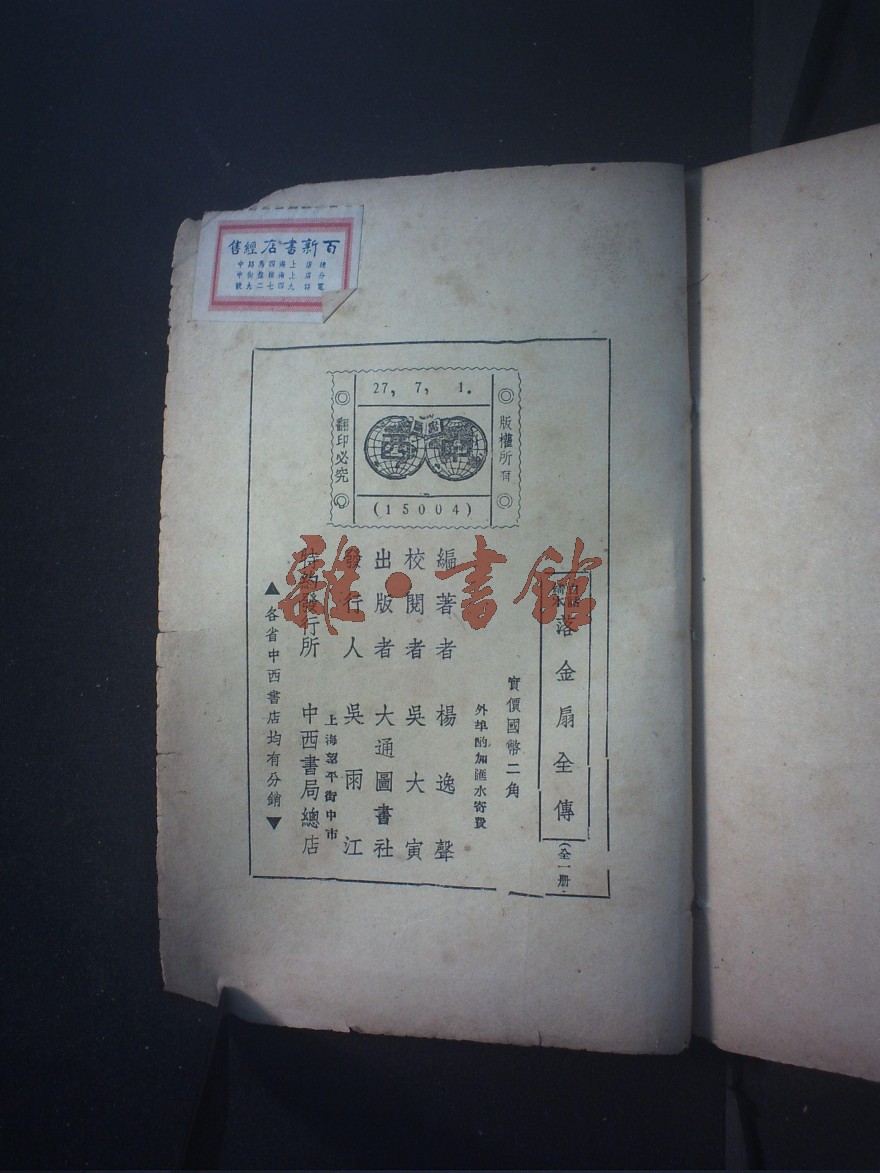 百新書店經售
27, 7, 1.
版權所有
翻印必究
(15004)
落金扇全傳
(全一册)
實價國幣二角
外埠酌加滙水寄費
編著者 楊逸聲
校閱者 吳大寅
出版者 大通圖書社
發行人 吳雨江
上海望平街中市
特約發行所 中西書局總店
▲各省中西書店均有分銷▼
雜·書館